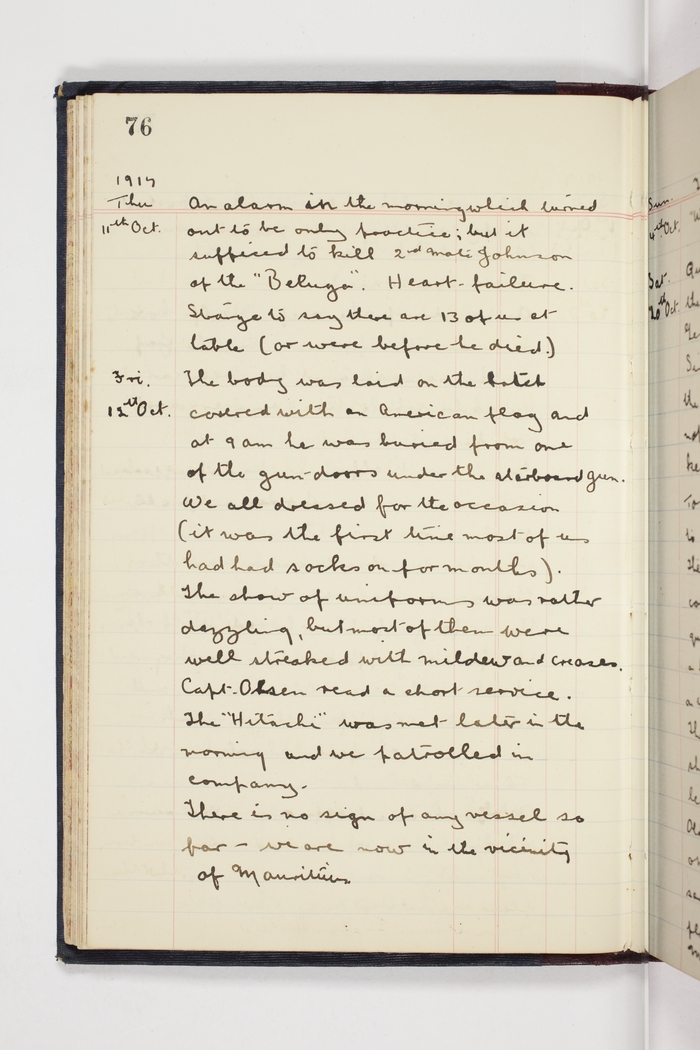 76
1917
Thu
11th Oct.
An alarm in the morning which turned
out to be only practice; but it
sufficed to kill 2nd mate Johnson
of the "Beluga". Heart-failure.
Strange to say there are 13 of us at
table (or were before he died.)
Fri.
12th Oct.
The body was laid on the hatch
covered with an American flag and
at 9 am he was buried from one
of the gun-doors under the starboard gun.
We all dressed for the occasion
(it was the first time most of us
had had socks on for months).
The show of uniforms was rather
dazzling, but most of them were
well streaked with mildew and creases.
Capt. Olsen read a short service.
The "Hitachi" was met later in the
morning and we patrolled in
company.
There is no sign of any vessel so
far - we are now in the vicinity
of Mauritius
Sun.
Oct.
Sat.
20th Oct.